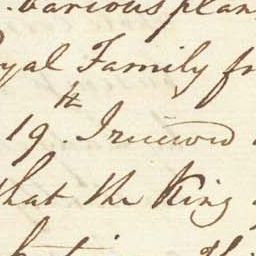 . various plan
yal Family fr
19th. I received
that the King